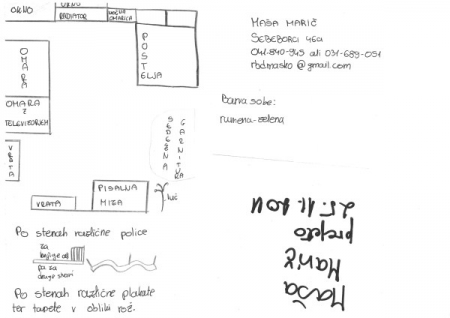 OKNO
OKNO
RADIATOR
NOČNA
OMARICA
POSTELJA
OMARA
OMARA
Z
TELEVIZORJEM
VRATA
SEDEŽNA
GARNITURA
PISALNA
MIZA
VRATA
luč
Po stenah različne police
za
knjige ali
pa za
druge stvari
Po stenah različne plakate
ter tapete v obliki rož.
MAŠA MARIČ
ŠEBEBORCI 46a
041-840-945 ali 031-689-051
rbdmasko@gmail.com
Barva sobe:
rumena-zelena
Maša
Marič
prejeto
25.11.2011